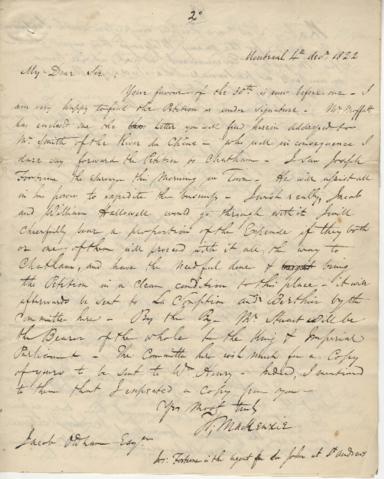 2°
Montreal 4th Decr 1822
My Dear Sir,
Your favour of the 30th is now before me - I
am very happy to find the Petition is under signature - Mr Moffatt
has enclosed me the letter you will find herein addressed to
Mr Smith of the River du Chêne - who will in consequence I
dare say forward the Petition to Chatham - I saw Joseph
Fortune the Surveyor this Morning in Town - He will assist all
in his power to expedite the business - I wish really, Jacob
and William Hallowell would go through with it I will
cheerfully bear a proportion of the Expence if they both
or one of them will proceed with it all the way to
Chatham, and have the needful done & bring
the Petition in a clean condition to this place - it will
afterwards be sent to L'Assomption and Berthier by the
Committee here - By the By - Mr Stuart will be
the Bearer of the whole to the King & Imperial
Parliament - The Committee here wish much for a Copy
of yours to be sent to Wm Henry - Indeed, I mentioned
to them that I expected a copy from you -
Yrs most truly
MacKenzie
Jacob Oldham Esqr
Jos: Fortune is the agent for Sir John at St Andrews